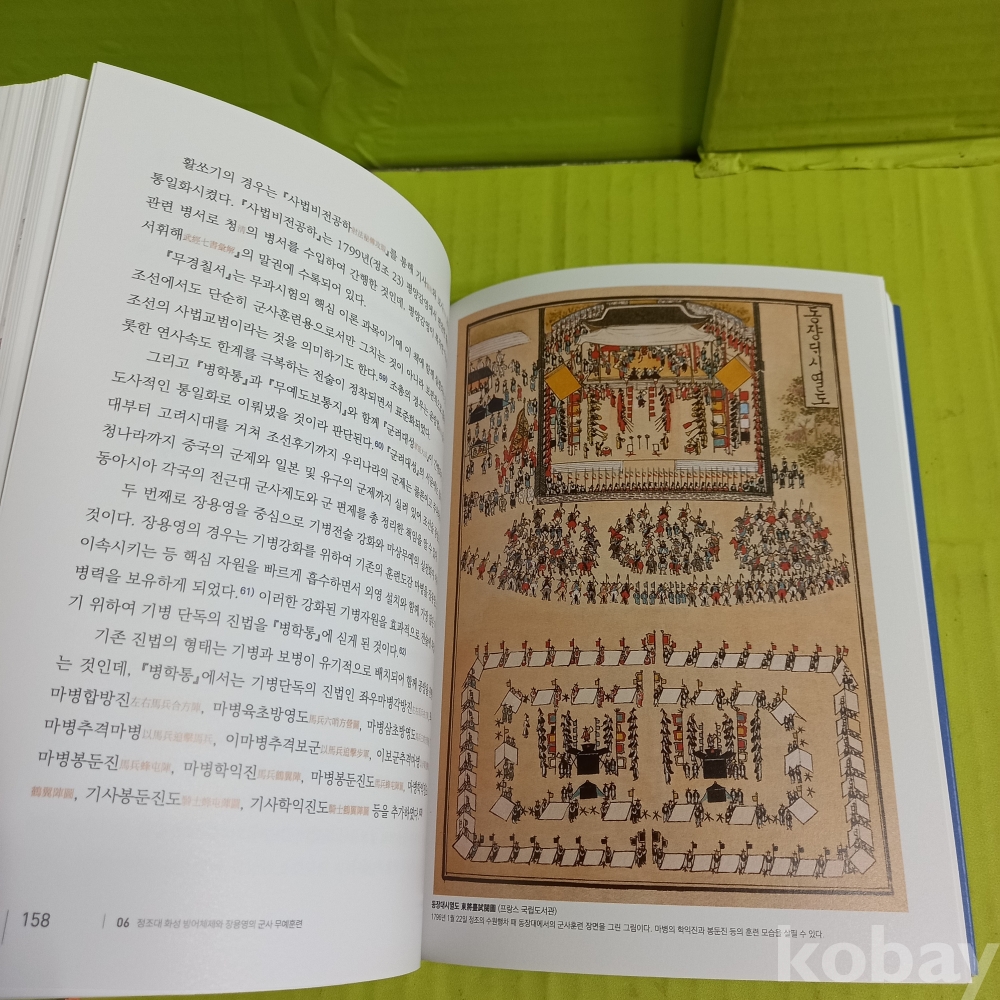 활쏘기의 경우는 『사법비전공하射法秘傳攻瑕』를 통해 기사
통일화시켰다. 『사법비전공하』는 1799년(정조 23) 평양감영에서
관련 병서로 청淸의 병서를 수입하여 간행한 것인데, 평양감영이
서휘해武經七書彙解』의 말권에 수록되어 있다.
『무경칠서』는 무과시험의 핵심 이론 과목이기에 이 책에 함께
조선에서도 단순히 군사훈련용으로서만 그치는 것이 아니라
조선의 사법교범이라는 것을 의미하기도 한다.59) 조총의 경우는
룻한 연사속도 한계를 극복하는 전술이 정착되면서 표준화되었다
그리고 『병학통』과 『무예도보통지』와 함께 『군려대성
도사적인 통일화로 이뤄냈을 것이라 판단된다.60) 『군려대성』의
대부터 고려시대를 거쳐 조선후기까지 우리나라의 군제는 물론이고
청나라까지 중국의 군제와 일본 및 유구의 군제까지 실려 있어
동아시아 각국의 전근대 군사제도와 군 편제를 총 정리한 책임을 알 수
두 번째로 장용영을 중심으로 기병전술 강화와 마상무예의
것이다. 장용영의 경우는 기병강화를 위하여 기존의 훈련도감 마병을
이속시키는 등 핵심 자원을 빠르게 흡수하면서 외영 설치와 함께 가장
병력을 보유하게 되었다.61) 이러한 강화된 기병자원을 효과적으로
기 위하여 기병 단독의 진법을 『병학통』에 싣게 된 것이다.62)
기존 진법의 형태는 기병과 보병이 유기적으로 배치되어 함께
는 것인데, 『병학통』에서는 기병단독의 진법인 좌우마병각방진
마병합방진左右馬兵合方陣, 마병육초방영도馬兵六哨方營圖, 마병삼초방영도
마병추격마병以馬兵追擊馬兵, 이마병추격보군以馬兵追擊步軍, 이보군추격마병
마병봉둔진馬兵蜂屯陣, 마병학익진馬兵鶴翼陣, 마병봉둔진도馬兵蜂屯陣圖, 마병학익진
鶴翼陣圖, 기사봉둔진도騎士蜂屯陣圖, 기사학익진도騎士鶴翼陣圖 등을 추가하였다.
158
06 정조대 화성 방어체제와 장용영의 군사 무예훈련
동쟝ᄃᆡ시열도
동장대시열도 東將臺試閱圖 (프랑스 국립도서관)
1796년 1월 22일 정조의 수원행차 때 동장대에서의 군사훈련 장면을 그린 그림이다. 마병의 학익진과 봉둔진 등의 훈련 모습을 살필 수 있다.
kobay